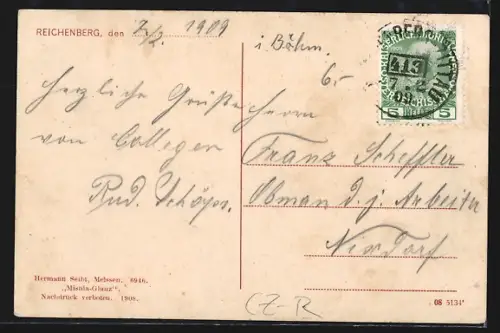 REICHENBERG, den 7/2. 1909
i Böhm.
6.-
413
5 5
Herzliche Grüße
von Collegen
Rud.
Herrn
Franz Scheffler
Obman d. j. Arbeiter
Nixdorf
Hermann Seibt, Meissen. 8946.
„Miania-Glanz“.
Nachdruck verboten. 1908.
CZ-R
06 5134